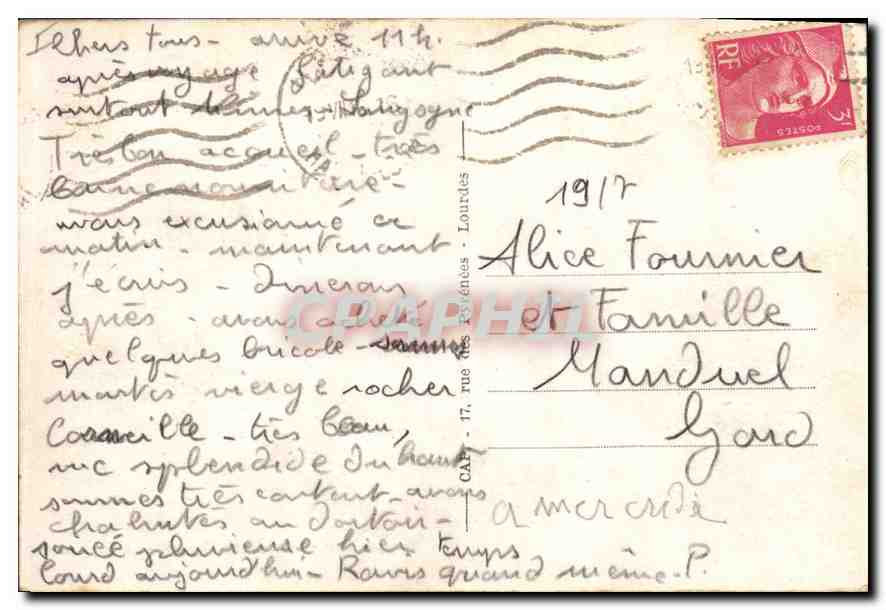 Chers tous - arrivé 11h.
après voyage fatigant
surtout Nîmes - Langogne
Très bon accueil - très
bonne nourriture -
avons excursionné ce
matin - maintenant
j'écris - Dînerons
après - avons acheté
quelques bricole - sommes
montés vierge rocher
Corneille - très beau,
vue splendide du haut
sommes très content - avons
chahutés au dortoir -
pluvieuse hier temps
lourd aujourd'hui - Ravis quand même - P.
CAP - 17, rue des Pyrénées - Lourdes
RF
POSTES
3F
19/7
Alice Fournier
et Famille
Manduel
Gard
a mercredi
CPAPHIL